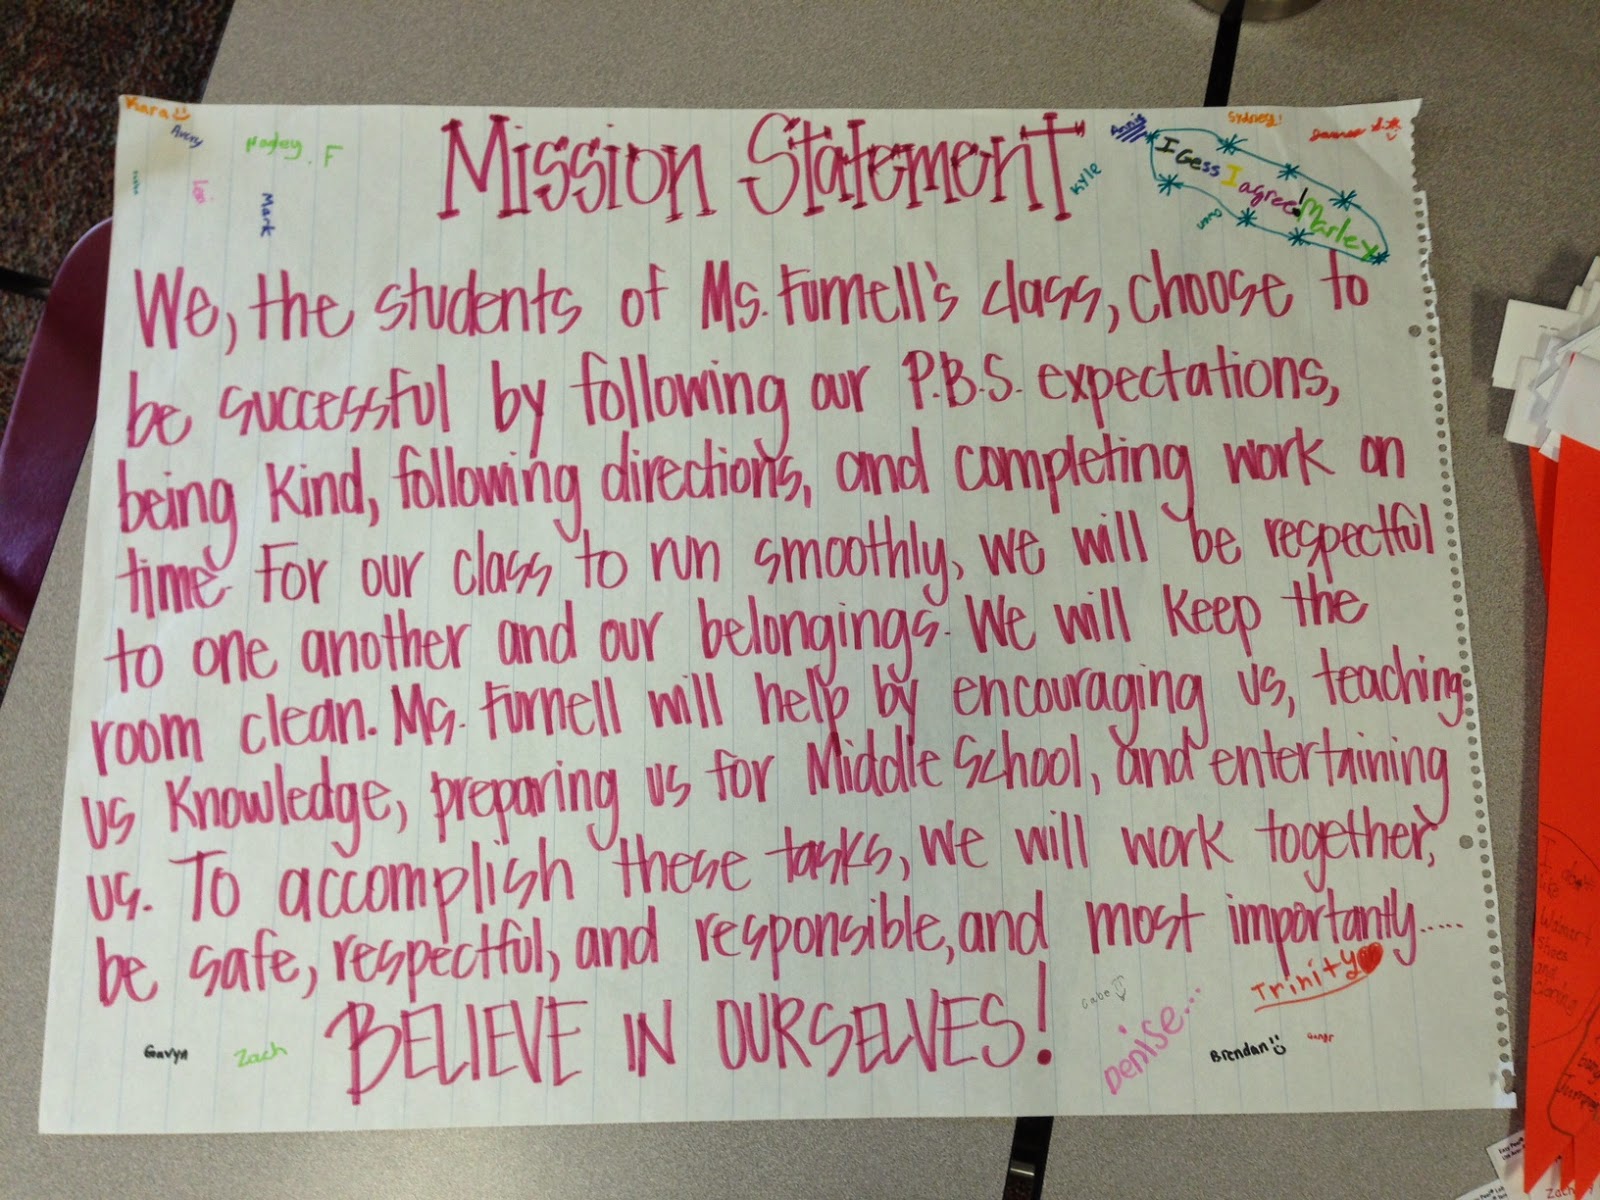 Kara
Avery
Hayley. F
Lexi
Mark
Mission Statement
Kyle
Annie
Sydney!
I Gess I agree! Marley
Owen
We, the students of Ms. Furnell's class, choose to
be successful by following our P.B.S. expectations,
being Kind, following directions, and completing work on
time. For our class to run smoothly, we will be respectful
to one another and our belongings. We will keep the
room clean. Ms. Furnell will help by encouraging us, teaching
us Knowledge, preparing us for Middle School, and entertaining
us. To accomplish these tasks, we will work together,
be safe, respectful, and responsible, and most importantly.....
BELIEVE IN OURSELVES!
Gavyn
Zach
Gabe
Denise...
Trinity
Brendan
I don't
like
Walmart
shoes
and